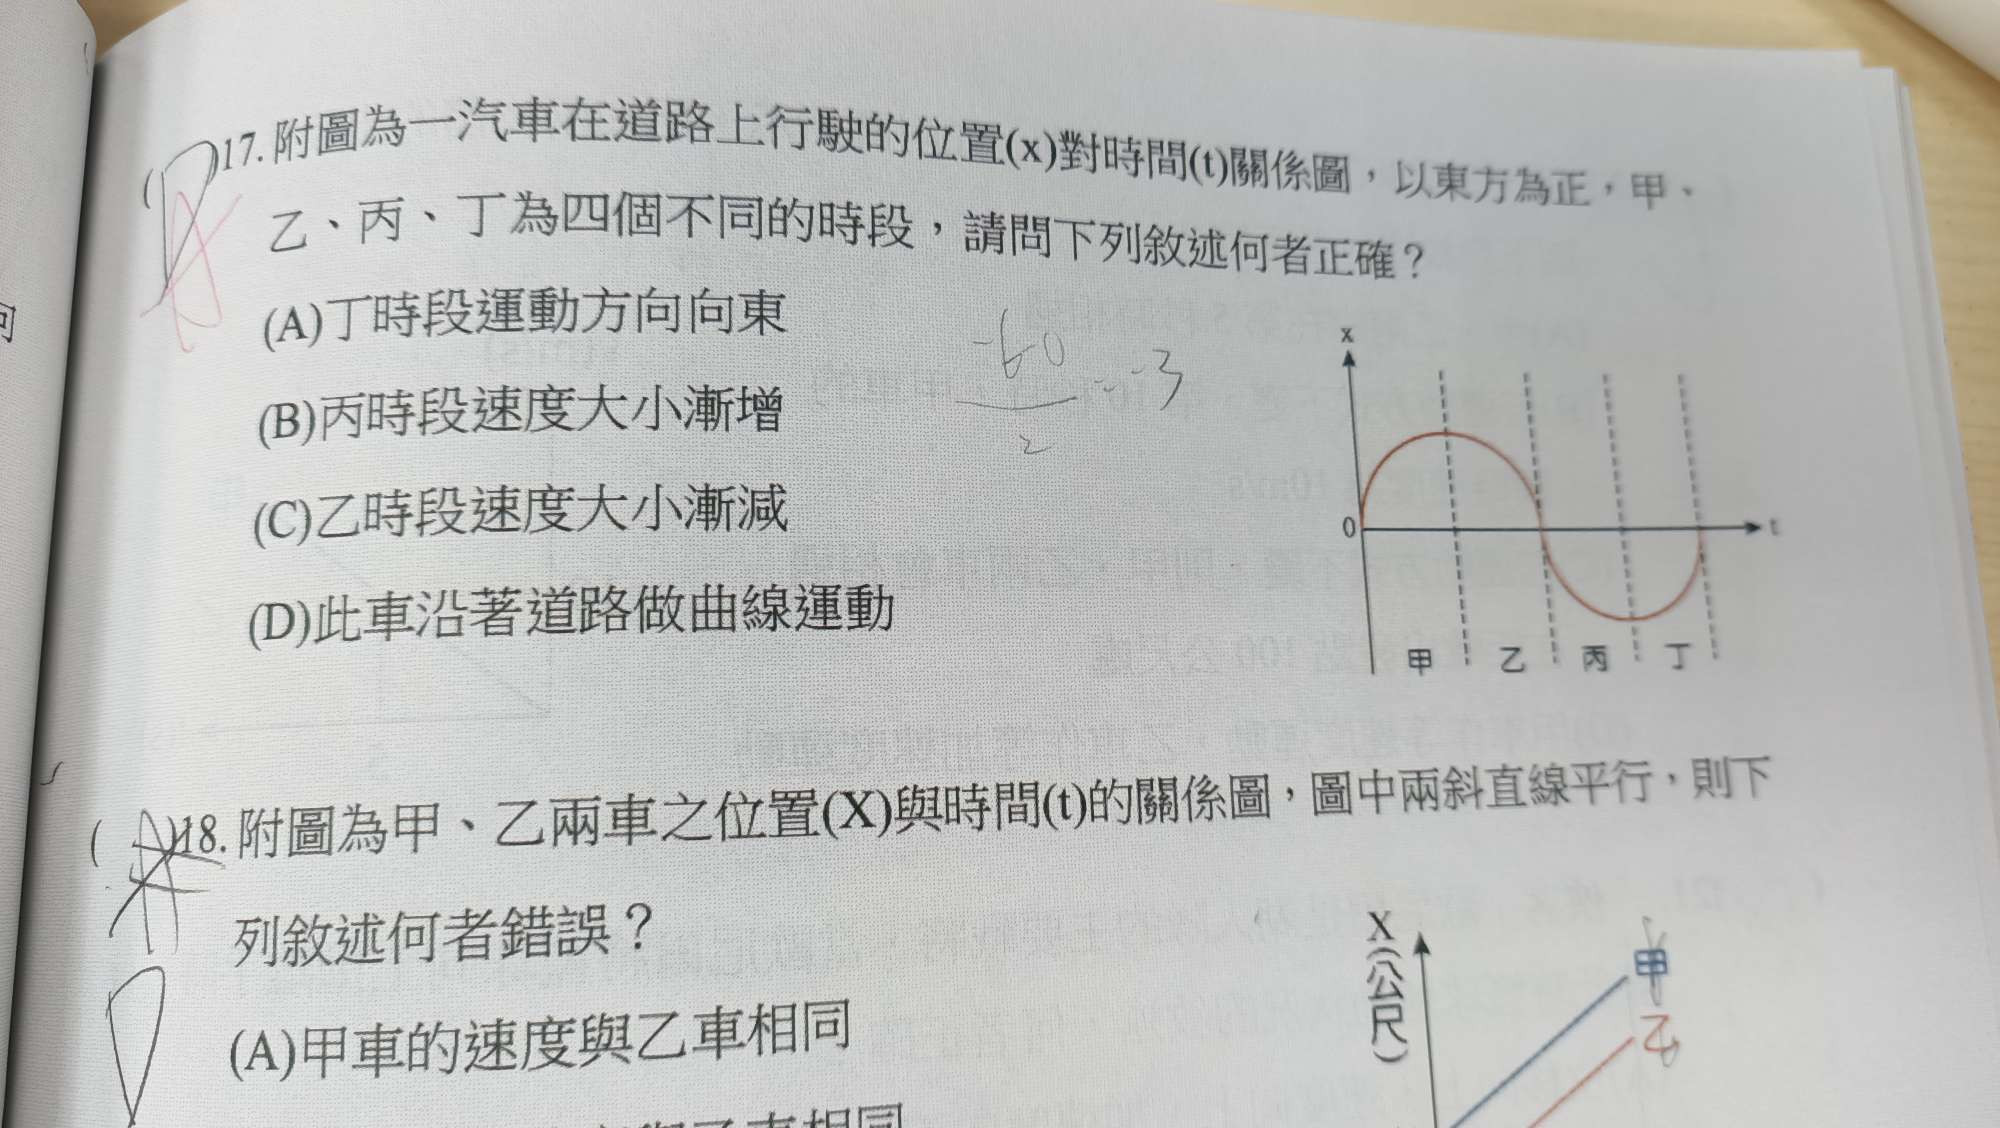 ( )17. 附圖為一汽車在道路上行駛的位置(x)對時間(t)關係圖，以東方為正，甲、
乙、丙、丁為四個不同的時段，請問下列敘述何者正確？
(A)丁時段運動方向向東
(B)丙時段速度大小漸增
(C)乙時段速度大小漸減
(D)此車沿著道路做曲線運動
-60
2
-3
x
0
t
甲 乙 丙 丁
( )18. 附圖為甲、乙兩車之位置(X)與時間(t)的關係圖，圖中兩斜直線平行，則下
列敘述何者錯誤？
(A)甲車的速度與乙車相同
X(公尺)
甲
乙